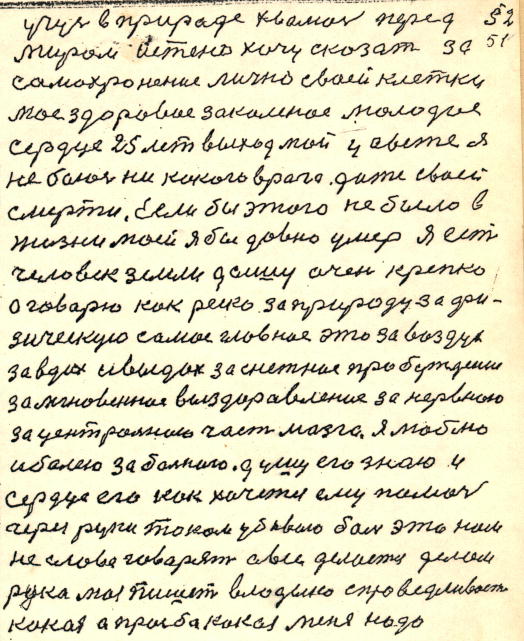 учуя в прираде хвамоя перед 52
миром истено хочу сказат за 51
самахронение лично своей клетки
мое здоровое закаленое молодое
сердце 25 лет выход мой у авете я
не боюся ни какого врага. даже своей
смерти. Если бы этого не было в
жизни моей я бы довно умер я ест
человек земли дышу очен крепко
о говарю как реско за природу за фи-
зическую самое гловное это за воздух
за вдох и выдох за снежное пробуждение
за мгновенное выздоравление за нервною
за централною част мазга. Я люблю
и балею за балного. душу его знаю и
сердце его как хочется ему памоч
через руки током убиваю бол это нам
не слова говарят а все делается делом
рука моя пишет владыко справедливост
какая а прозба какая меня надо